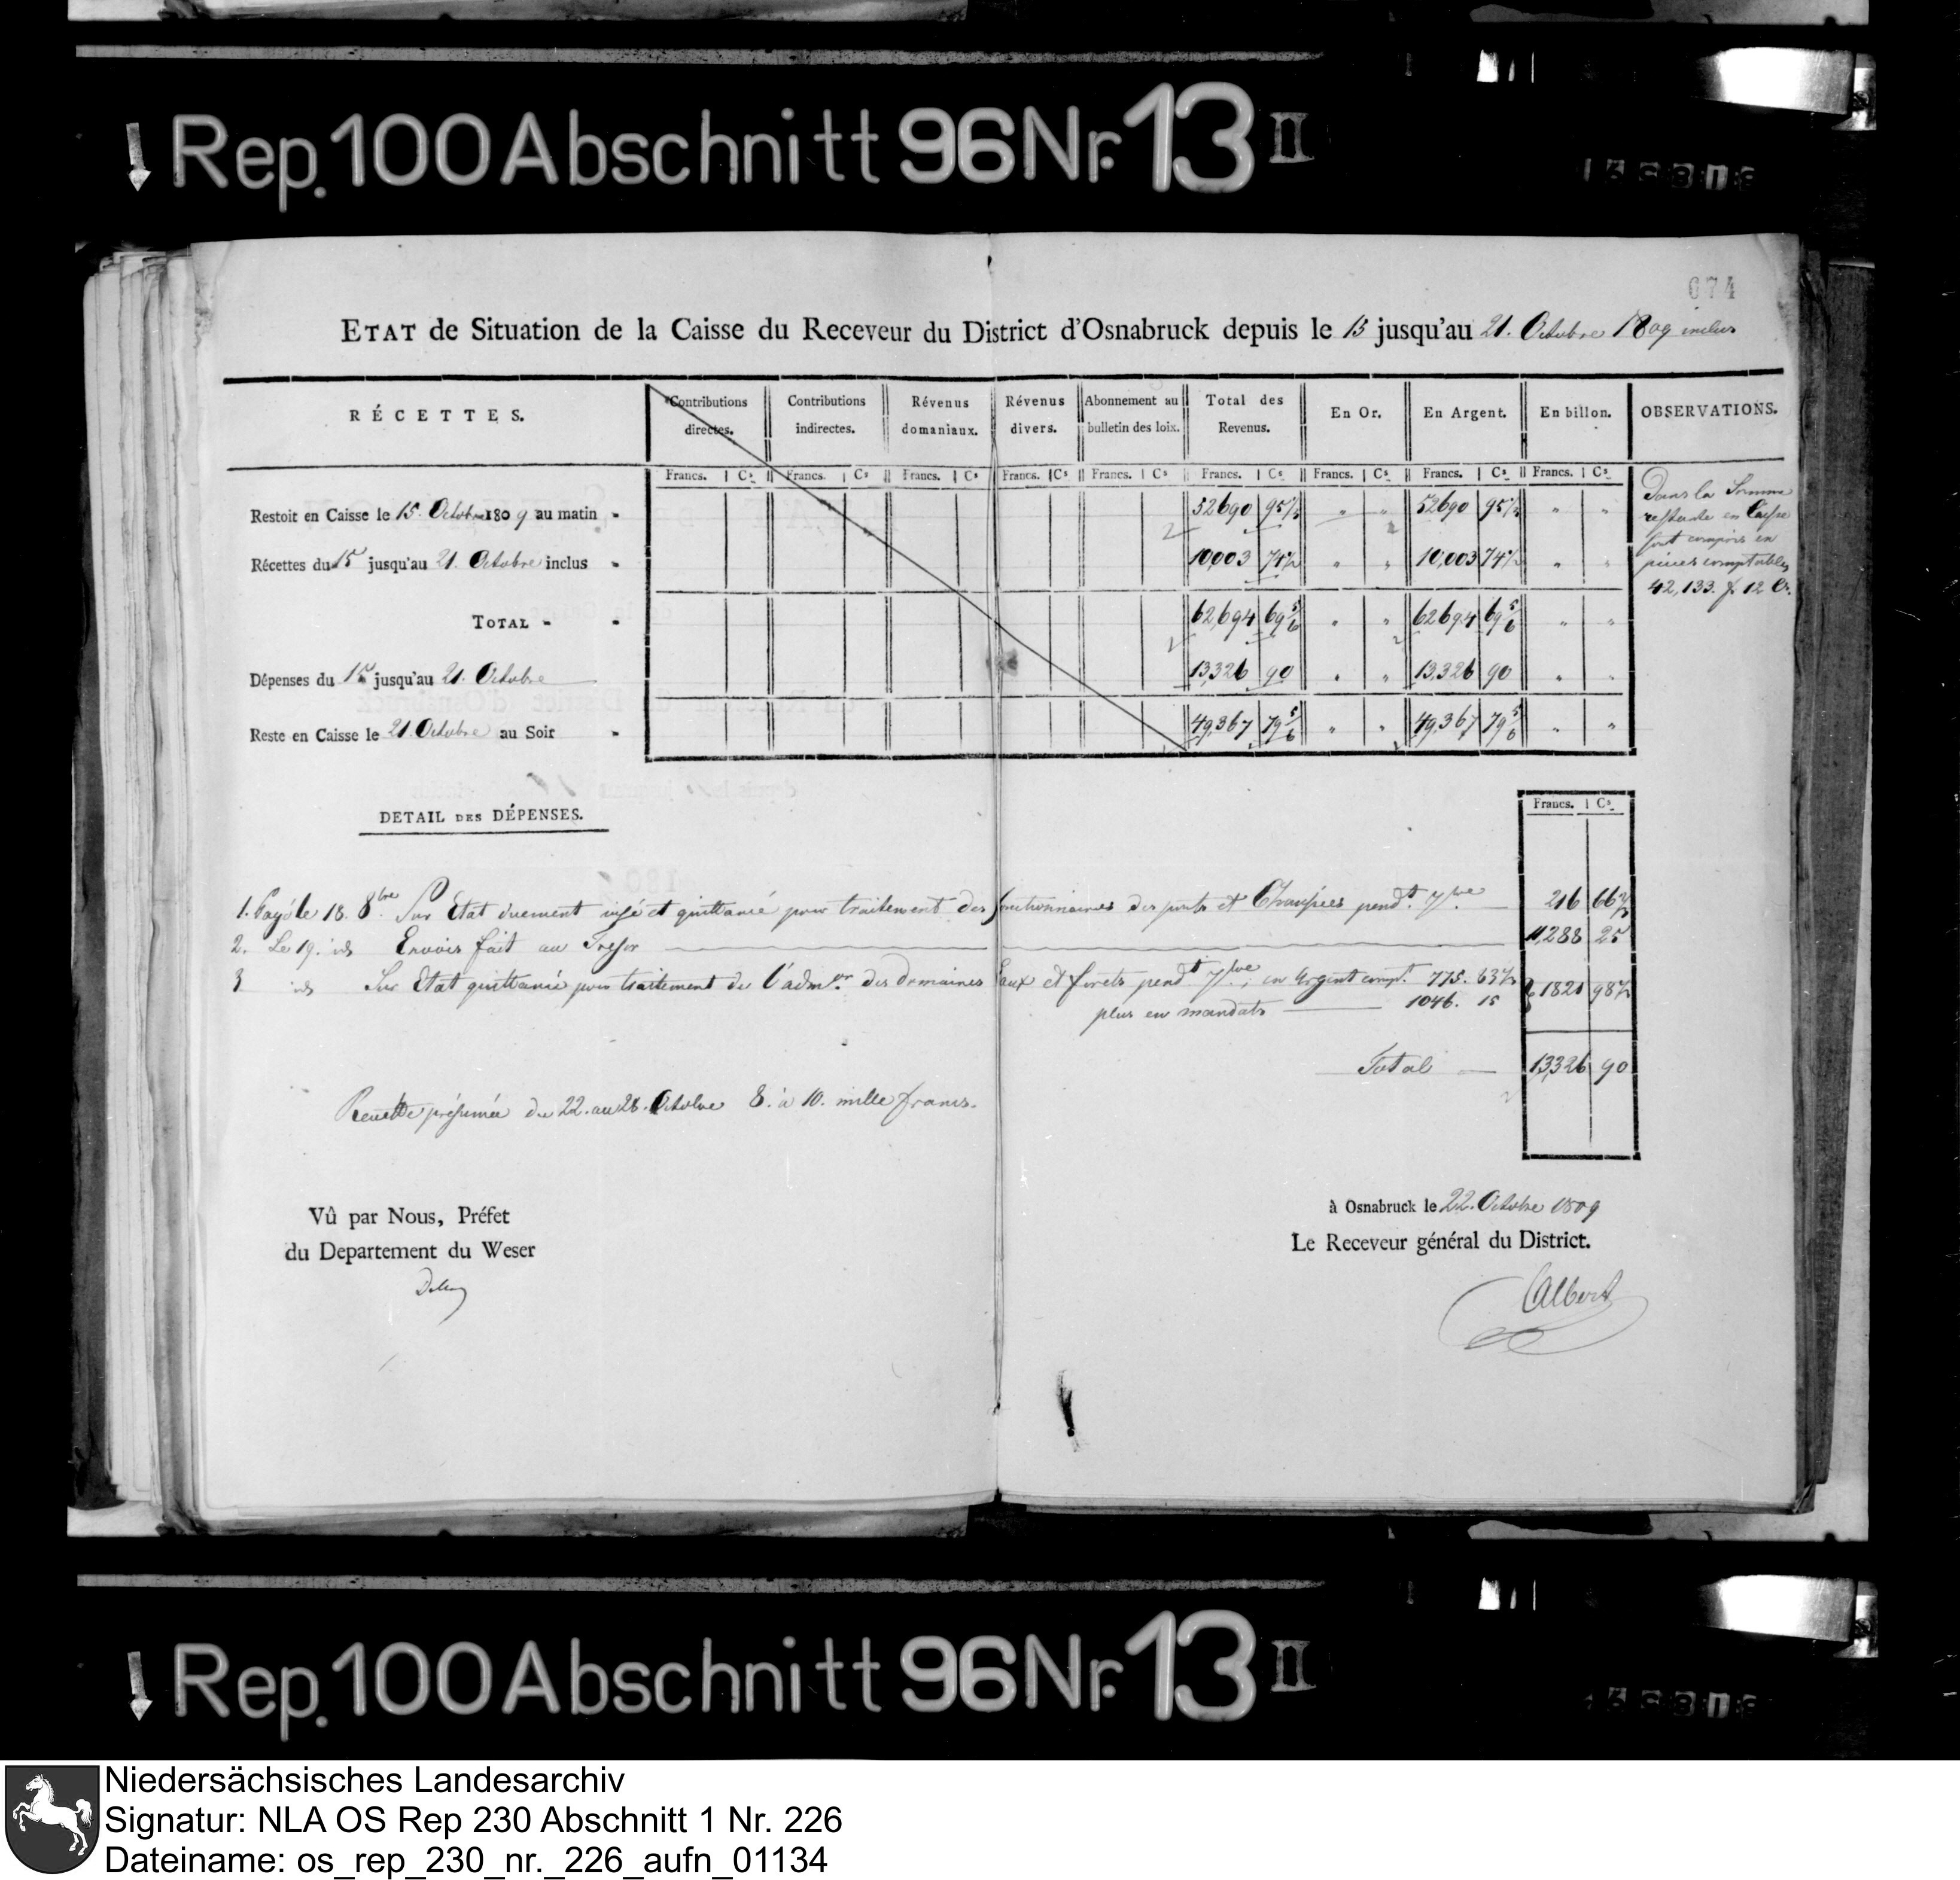 Rep. 100 Abschnitt 96 Nr. 13 II
074
ETAT de Situation de la Caisse du Receveur du District d'Osnabruck depuis le 15 jusqu'au 21. Octobre 1809 inclus
RÉCETTES. Contributions directes. Contributions indirectes. Révenus domaniaux. Révenus divers. Abonnement au bulletin des loix. Total des Revenus. En Or. En Argent. En billon. OBSERVATIONS.
Francs. Cs. Francs. Cs Francs. Cs Francs. Cs Francs. Cs Francs. Cs. Francs. Cs. Francs. Cs. Francs. Cs.
Restoit en Caisse le 15. Octobre 1809 au matin 52690 95 " " 52690 95 " "
Récettes du 15 jusqu'au 21. Octobre inclus 10,003 74 " " 10,003 74 " "
TOTAL 62,694 69 5/6 " " 62694 69 5/6 " "
Dépenses du 15 jusqu'au 21. Octobre 13,326 90 " " 13,326 90 " "
Reste en Caisse le 21. Octobre au Soir 49,367 79 5/6 " " 49,367 79 5/6 " "
Dans la Somme
restante en Caisse
sont compris en
pieces comptables
42,133. f 12 Cs.
DETAIL DES DÉPENSES.
Francs. Cs.
1. Payé le 18. 8bre Sur Etat duement visé et quittancé pour traitement des fonctionnaires des ponts et Chaussées pendt. 7bre. 216 66
2. Le 19. id Envoi fait au Tresor 11,288 25
3 id Sur Etat quittancé pour traitement de l'admon des domaines Eaux et forets pendt 7bre; en Argent compt. 775. 83 1821 98
plus en mandats 1046. 15
Total 13,326 90
Recette présumée du 22. au 28. Octobre 8. à 10. mille francs.
Vû par Nous, Préfet
du Departement du Weser
à Osnabruck le 22. Octobre 1809
Le Receveur général du District.
Calbert
Rep. 100 Abschnitt 96 Nr. 13 II
Niedersächsisches Landesarchiv
Signatur: NLA OS Rep 230 Abschnitt 1 Nr. 226
Dateiname: os_rep_230_nr._226_aufn_01134